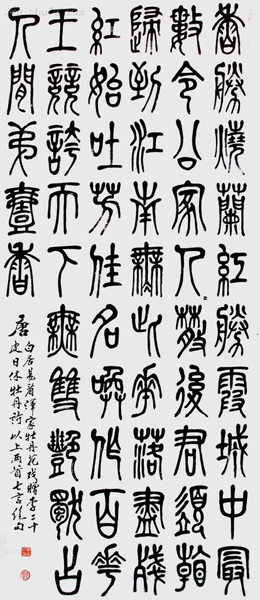 香勝燒蘭紅勝霞城中最
數令公家人〻散後君須看
歸到江南無此花落盡殘
紅始吐芳佳名喚作百花
王競誇天下無雙艷獨占
人間弟壹香
唐 白居易看渾家牡丹花戲贈李二十
皮日休牡丹詩 以上兩首七言絕句